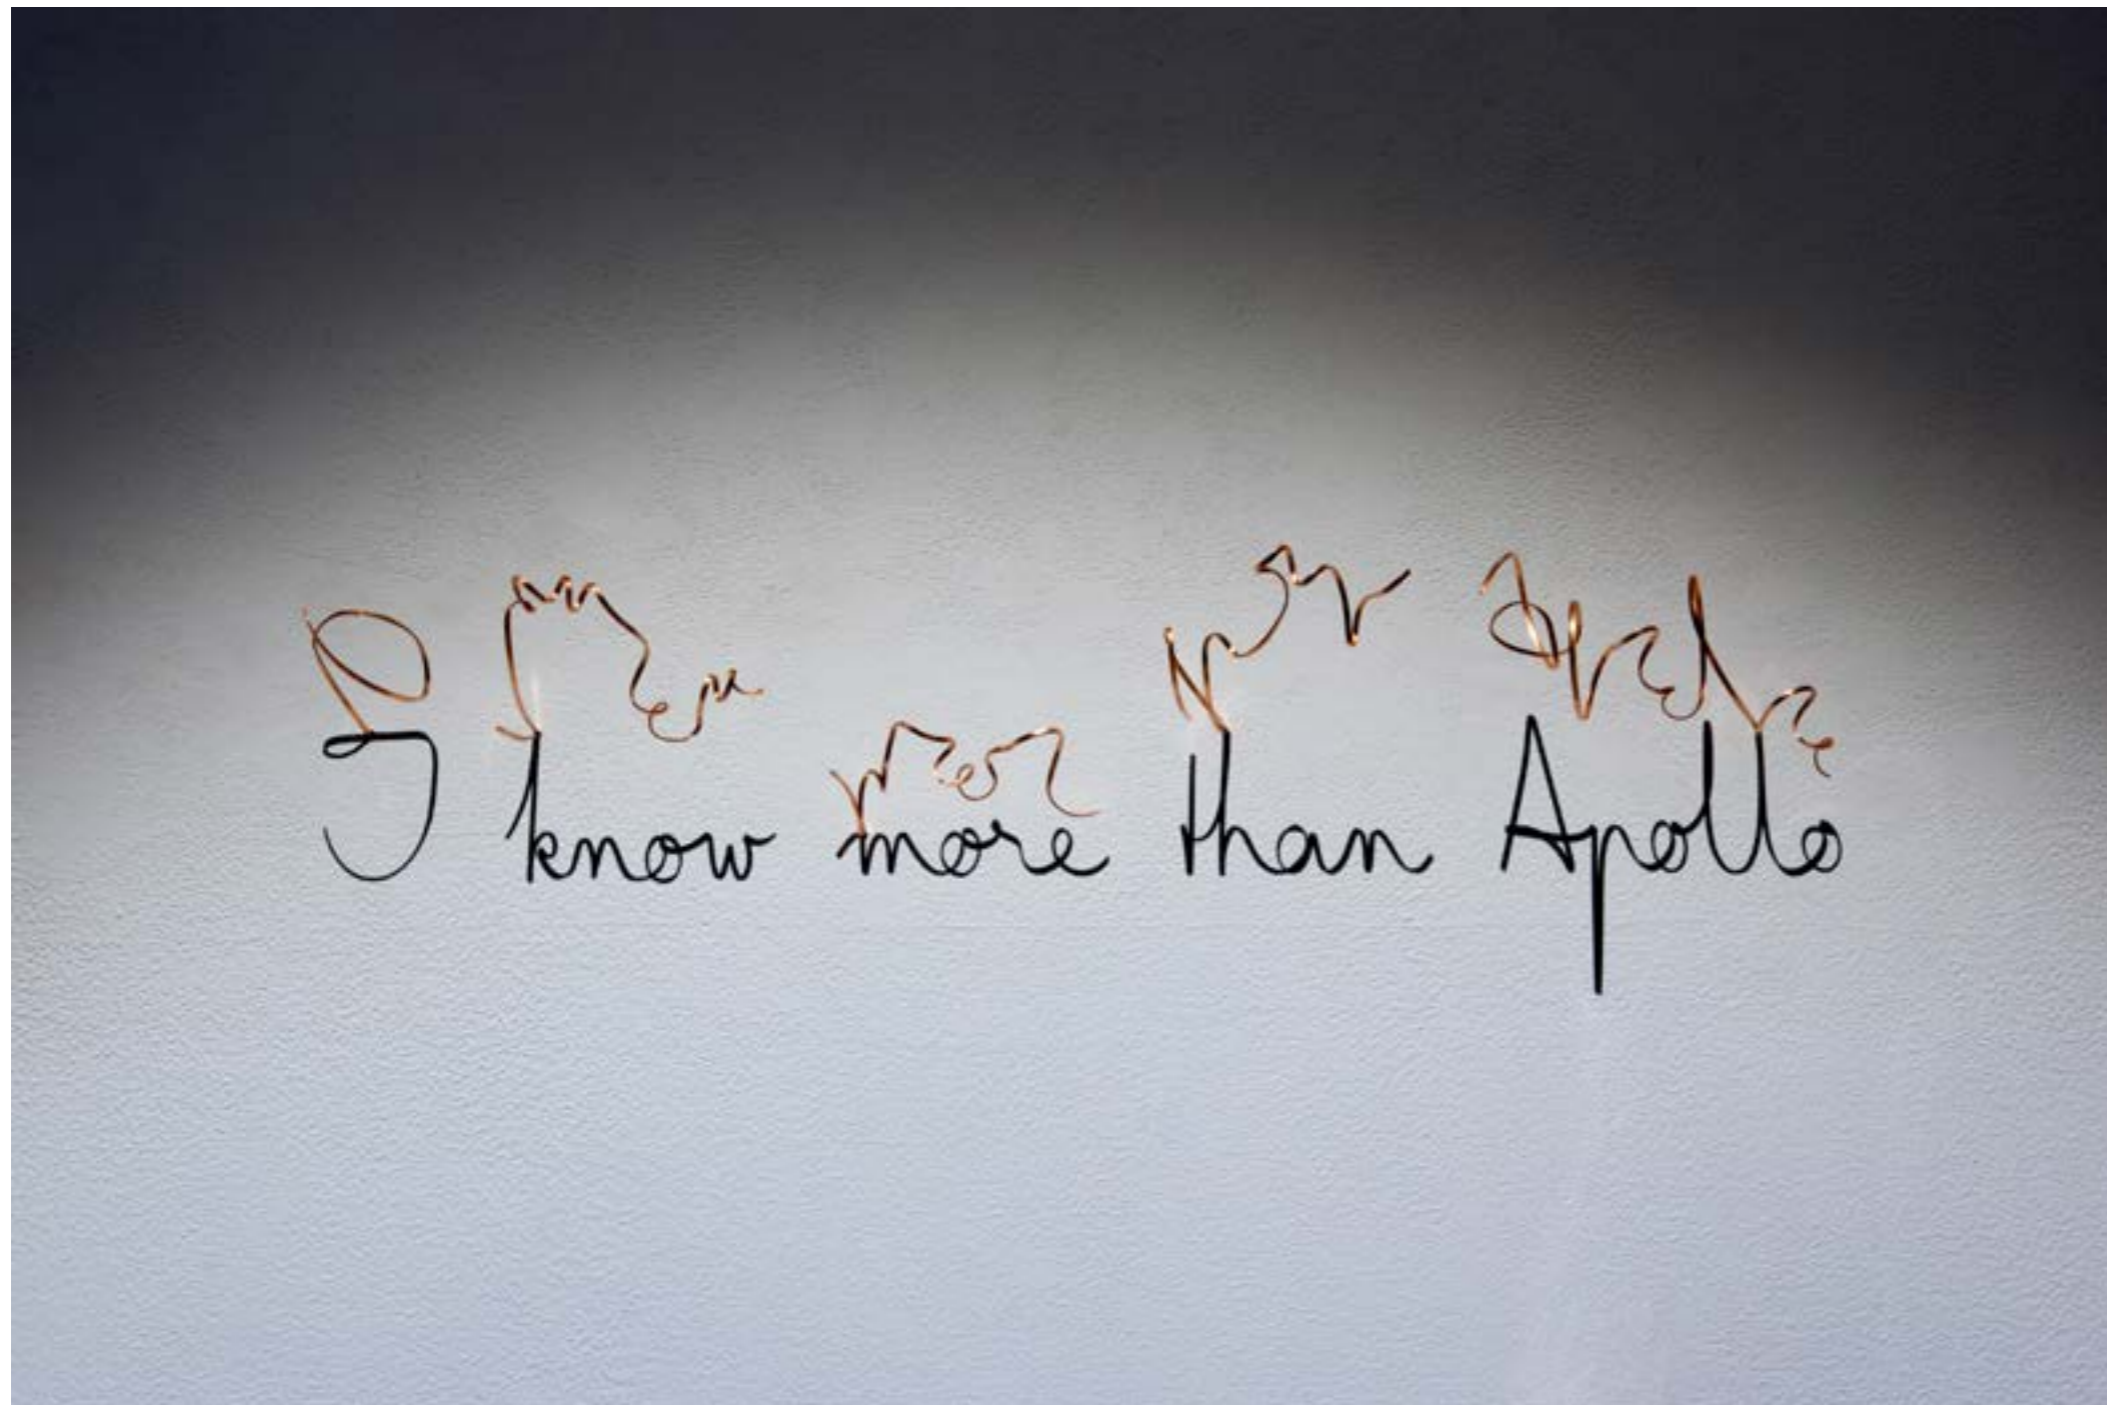 I know more than Apollo